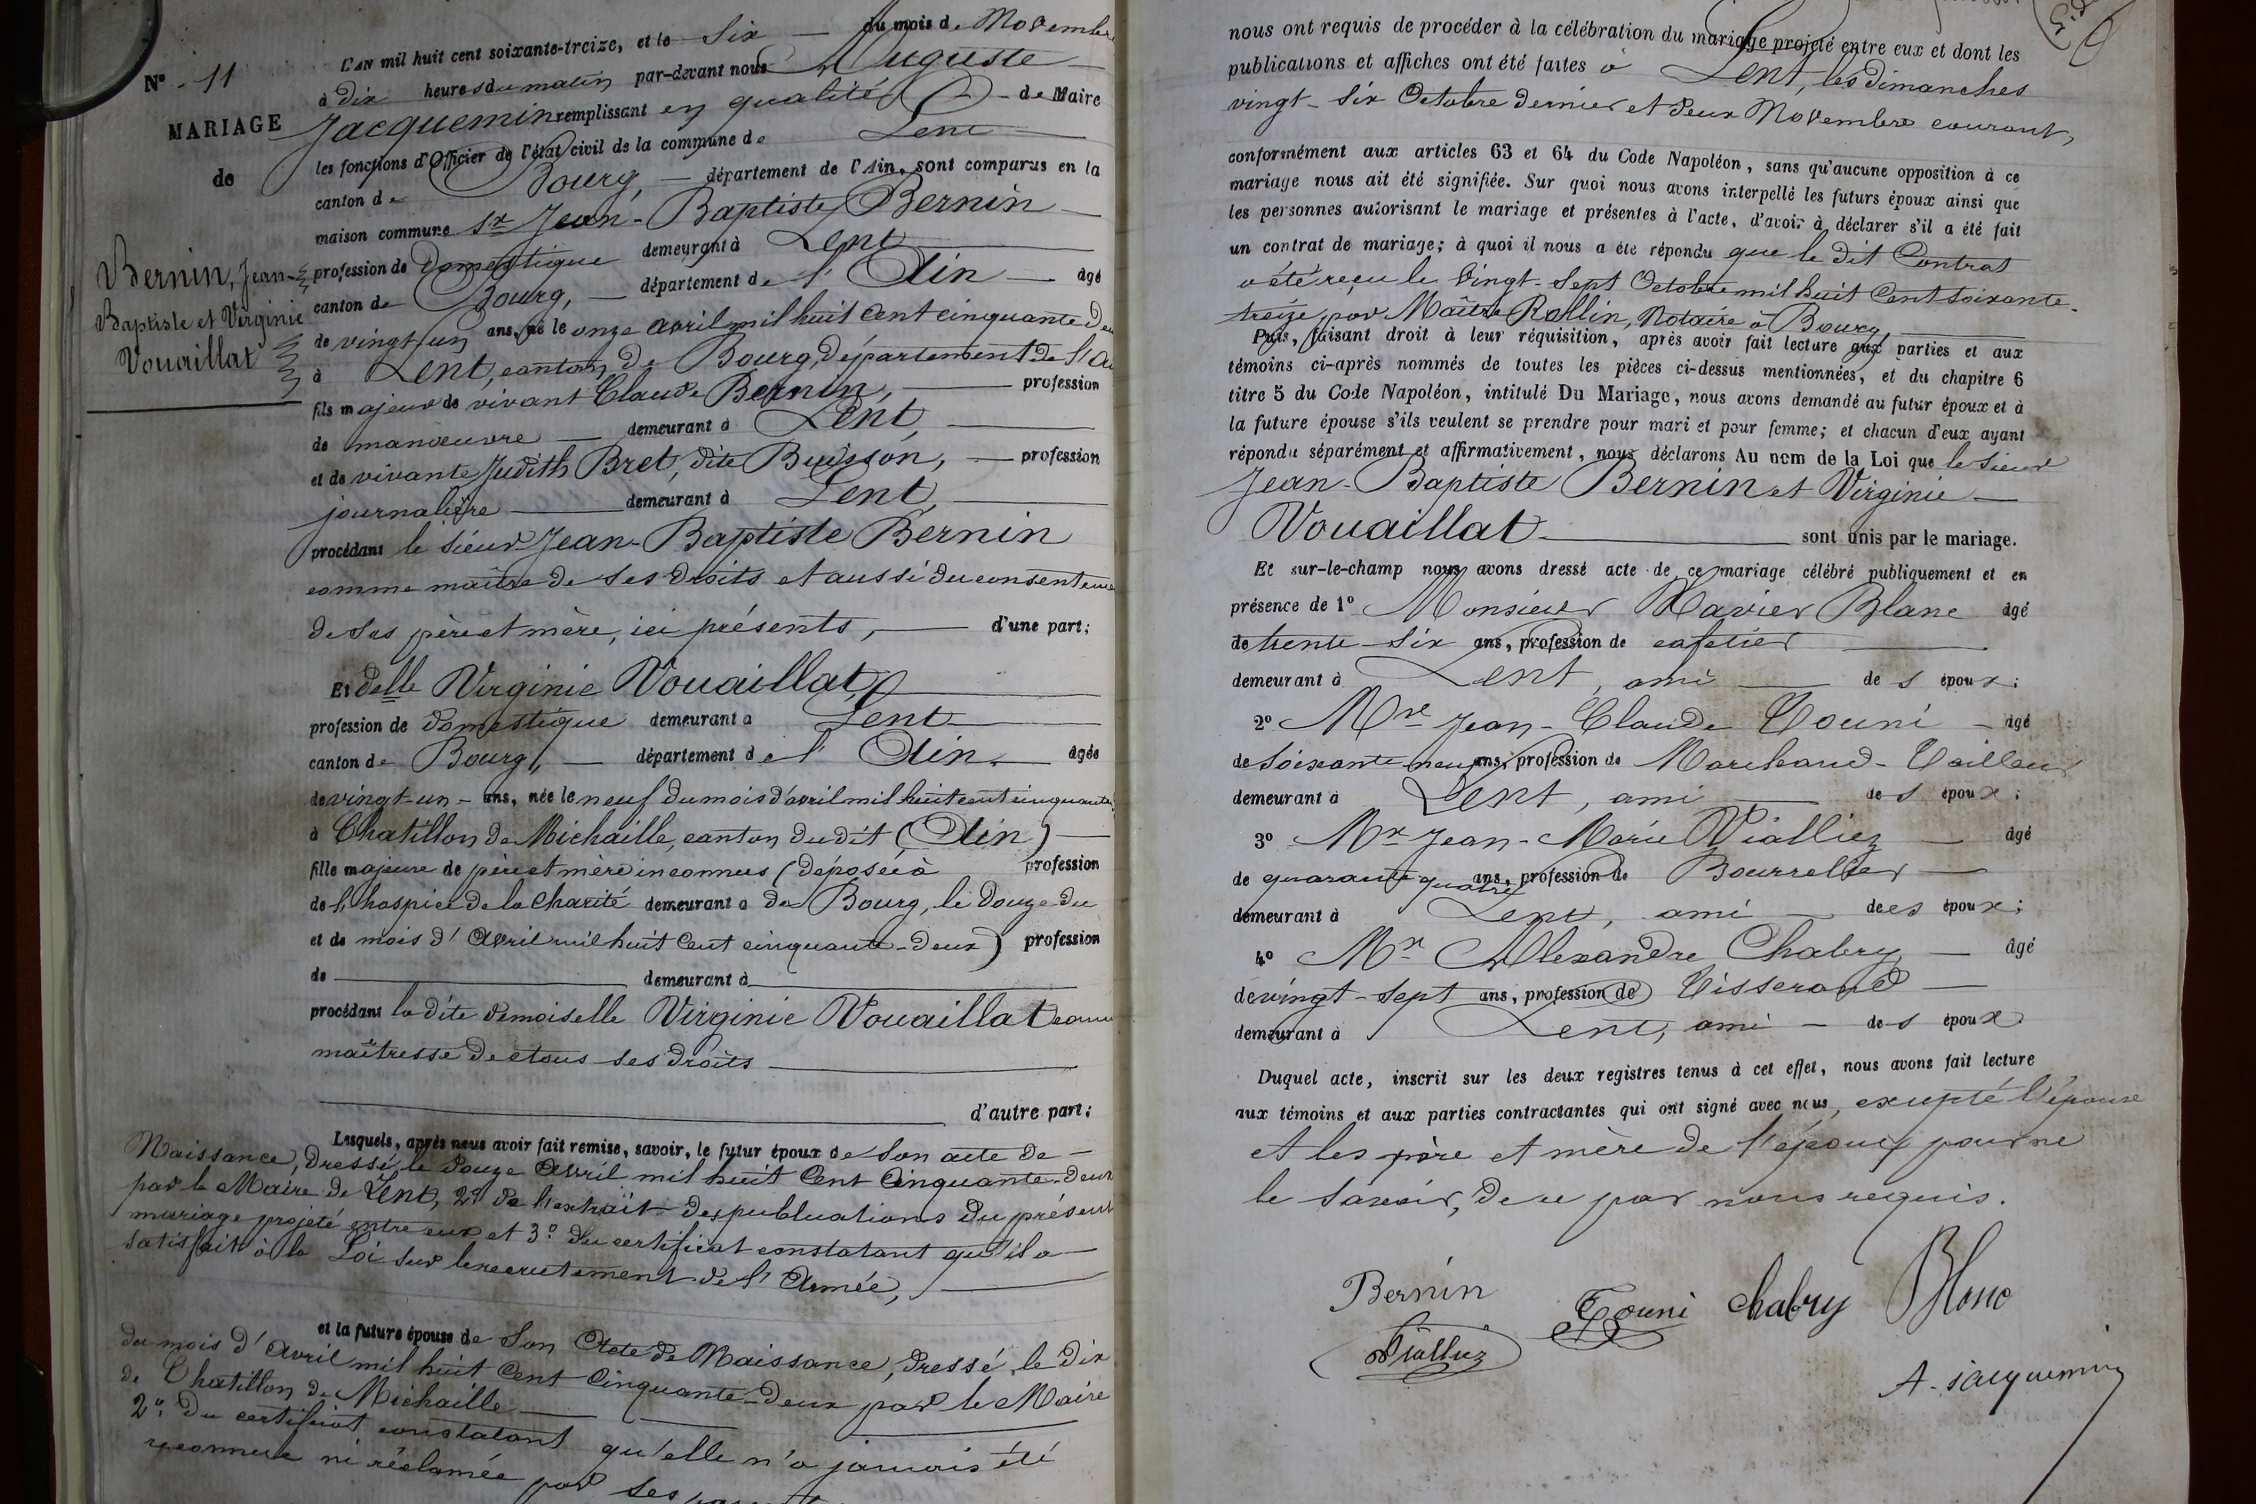 L'AN mil huit cent soixante-treize, et le Six du mois de Novembre
N° 11
à Dix heures du matin par-devant nous Auguste
MARIAGE
Jacquemin remplissant en qualité de Maire
les fonctions d'Officier de l'état civil de la commune de Lent
de
canton de Bourg, département de l'Ain, sont comparus en la
maison commune Sr Jean-Baptiste Bernin
Bernin, Jean-
Baptiste et Virginie
Vouaillat
profession de Domestique demeurant à Lent
canton de Bourg, département de l'Ain âgé
de vingt un ans, né le onze avril mil huit cent cinquante deux
à Lent, canton de Bourg, département de l'Ain
fils majeur de vivant Claude Bernin, profession
de manœuvre demeurant à Lent,
et de vivante Judith Bret, dite Buisson, profession
journalière demeurant à Lent
procédant le sieur Jean-Baptiste Bernin
comme maître de ses droits et aussi du consentement
de ses père et mère, ici présents, d'une part;
Et delle Virginie Vouaillat,
profession de domestique demeurant à Lent
canton de Bourg, département de l'Ain âgée
de vingt-un ans, née le neuf du mois d'avril mil huit cent cinquante
à Chatillon de Michaille, canton du dit (Ain)
fille majeure de père et mère inconnus (déposée à profession
de l'hospice de la Charité demeurant à de Bourg, le douze du
et de mois d'Avril mil huit Cent cinquante-deux) profession
de demeurant à
procédant la dite demoiselle Virginie Vouaillat comme
maîtresse de tous ses droits
d'autre part;
Lesquels, après nous avoir fait remise, savoir, le futur époux de Son acte de
Naissance, dressé le douze Avril mil huit Cent Cinquante-Deux
par le Maire de Lent, 2° de l'extrait des publications du présent
mariage projeté entre eux et 3° du certificat constatant qu'il a
satisfait à la Loi sur le recrutement de l'Armée,
et la future épouse de Son Acte de Naissance, dressé le dix
du mois d'Avril mil huit Cent Cinquante-Deux par le Maire
de Chatillon de Michaille
2° Du certificat constatant qu'elle n'a jamais été
reconnue ni réclamée par ses
nous ont requis de procéder à la célébration du mariage projeté entre eux et dont les
publications et affiches ont été faites à Lent, les dimanches
vingt-six Octobre dernier et deux Novembre courant,
conformément aux articles 63 et 64 du Code Napoléon, sans qu'aucune opposition à ce
mariage nous ait été signifiée. Sur quoi nous avons interpellé les futurs époux ainsi que
les personnes autorisant le mariage et présentes à l'acte, d'avoir à déclarer s'il a été fait
un contrat de mariage; à quoi il nous a été répondu que le dit Contrat
a été reçu le Vingt-Sept Octobre mil huit Cent soixante-
treize, par Maître Rollin, Notaire à Bourg,
Puis, faisant droit à leur réquisition, après avoir fait lecture aux parties et aux
témoins ci-après nommés de toutes les pièces ci-dessus mentionnées, et du chapitre 6
titre 5 du Code Napoléon, intitulé Du Mariage, nous avons demandé au futur époux et à
la future épouse s'ils veulent se prendre pour mari et pour femme; et chacun d'eux ayant
répondu séparément et affirmativement, nous déclarons Au nom de la Loi que le sieur
Jean-Baptiste Bernin et Virginie
Vouaillat sont unis par le mariage.
Et sur-le-champ nous avons dressé acte de ce mariage célébré publiquement et en
présence de 1° Monsieur Xavier Blanc âgé
de trente-six ans, profession de cafetier
demeurant à Lent, ami des époux;
2° Mre Jean-Claude Touni âgé
de soixante neuf ans, profession de Marchand-Tailleur
demeurant à Lent, ami des époux;
3° Mr Jean-Marie Vialliez âgé
de quarante quatre ans, profession de Bourrelier
demeurant à Lent, ami des époux;
4° Mr Alexandre Chabry âgé
de vingt-sept ans, profession de Tisserand
demeurant à Lent, ami des époux
Duquel acte, inscrit sur les deux registres tenus à cet effet, nous avons fait lecture
aux témoins et aux parties contractantes qui ont signé avec nous, excepté l'épouse
et les père et mère de l'époux pour ne
le savoir, de ce par nous requis.
Bernin Touni Chabry Blanc
Vialliez
A. Jacquemin